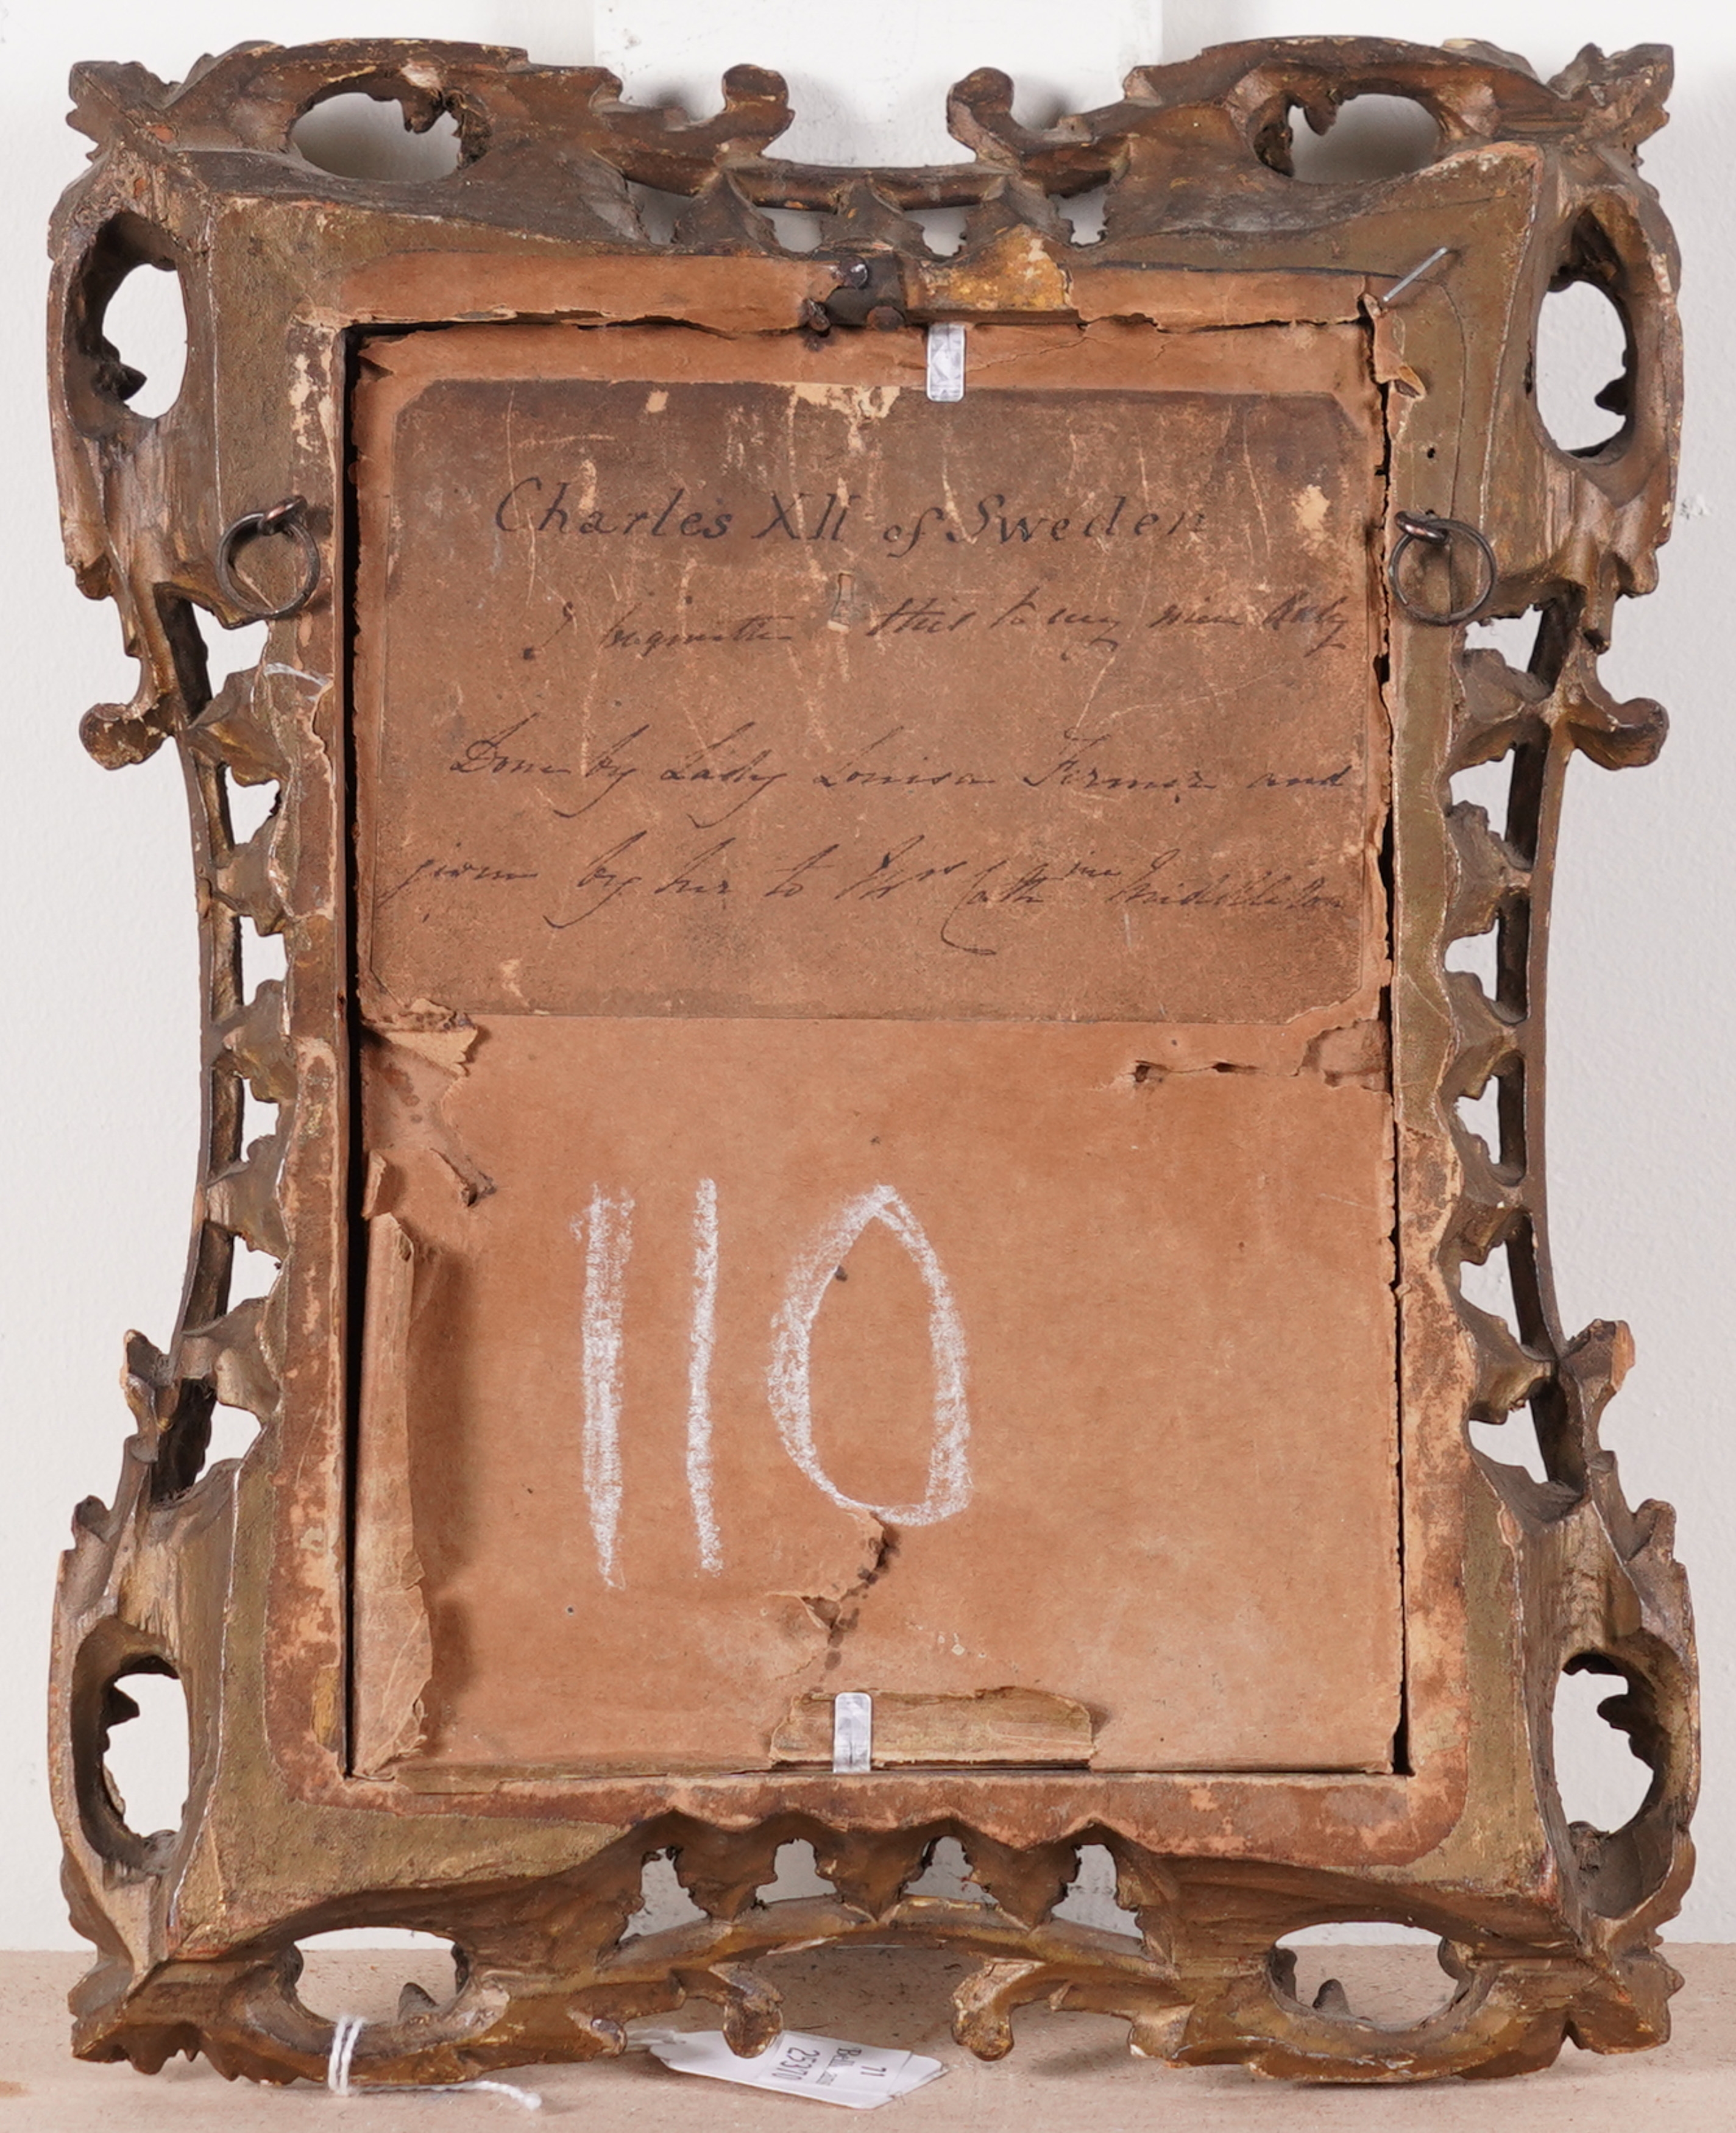 Charles XII of Sweden
I bequeath this to my niece
Done by Lady Louisa Fermor and
given by her to Mrs Cathrine Middleton
110
71
25370